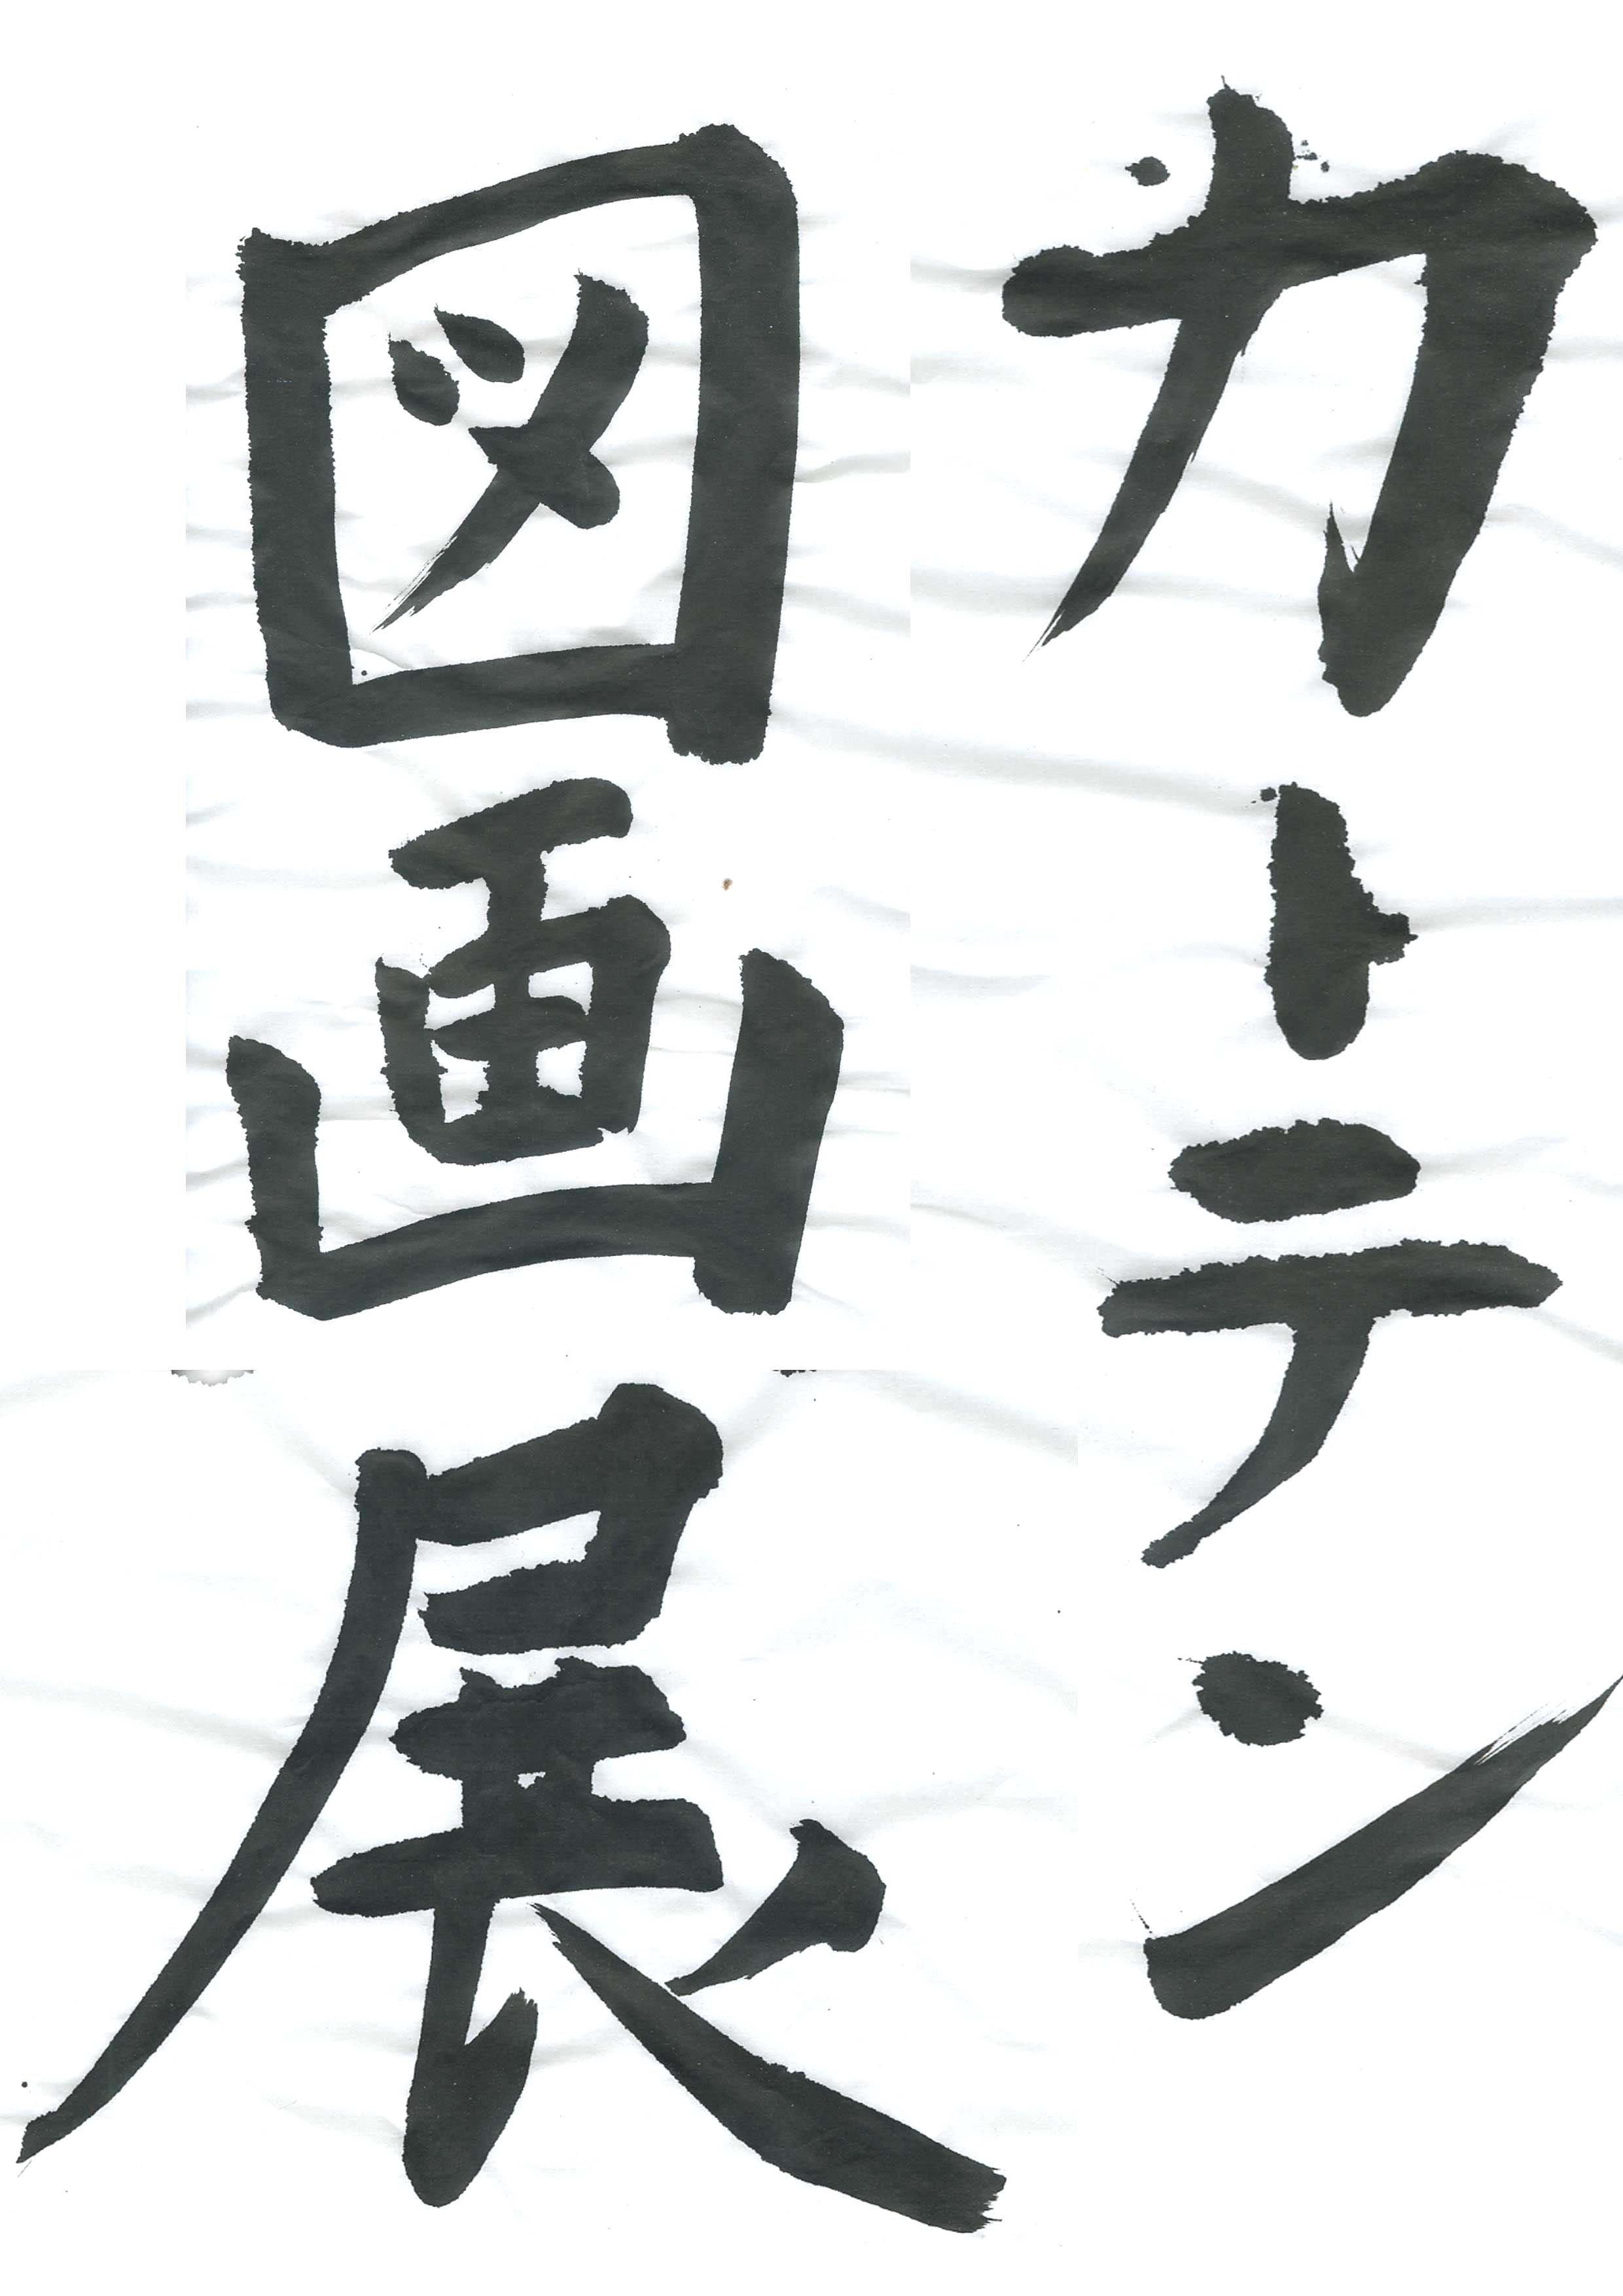 カーテン
図画展